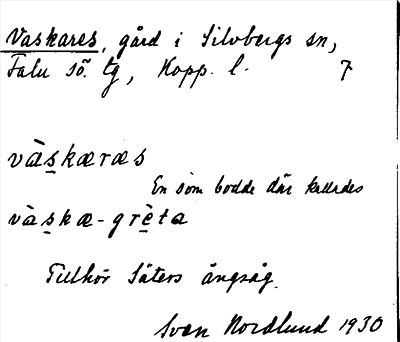 Vaskares, gård i Silvbergs sn,
Falu sö. tg, Kopp. l. 7
và̀s̱kæræs
En som bodde där kallades
và̀s̱kæ-grè̱ta
Tillhör Säters ångsåg.
Sven Nordlund 1930